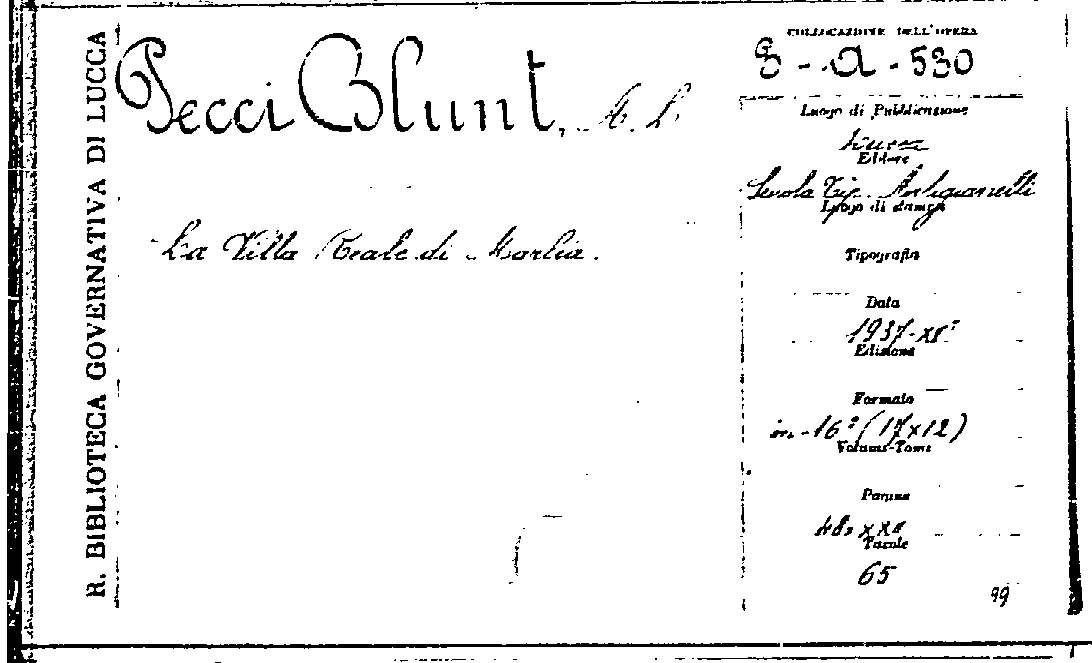 R. BIBLIOTECA GOVERNATIVA DI LUCCA
Pecci Blunt, A. L.
La Villa Reale di Marlia.
COLLOCAZIONE DELL'OPERA
8 - A - 530
Luogo di Pubblicazione
Lucca
Editore
Scuola Tip. Artigianelli
Luogo di stampa
Tipografia
Data
1937-XVº
Edizione
Formato
in-16º (17x12)
Volume-Tomo
Pagine
Tavole
65
99